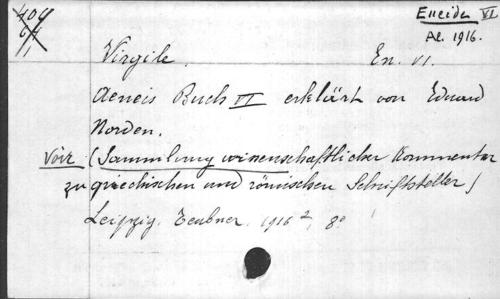 Eneide VI
Al. 1916.
Virgile. En. VI.
Aeneis Buch VI erklärt von Eduard
Norden.
Voir (Sammlung wissenschaftlicher Kommentar
zu griechischen und römischen Schriftsteller)
Leipzig. Teubner. 1916², 8º